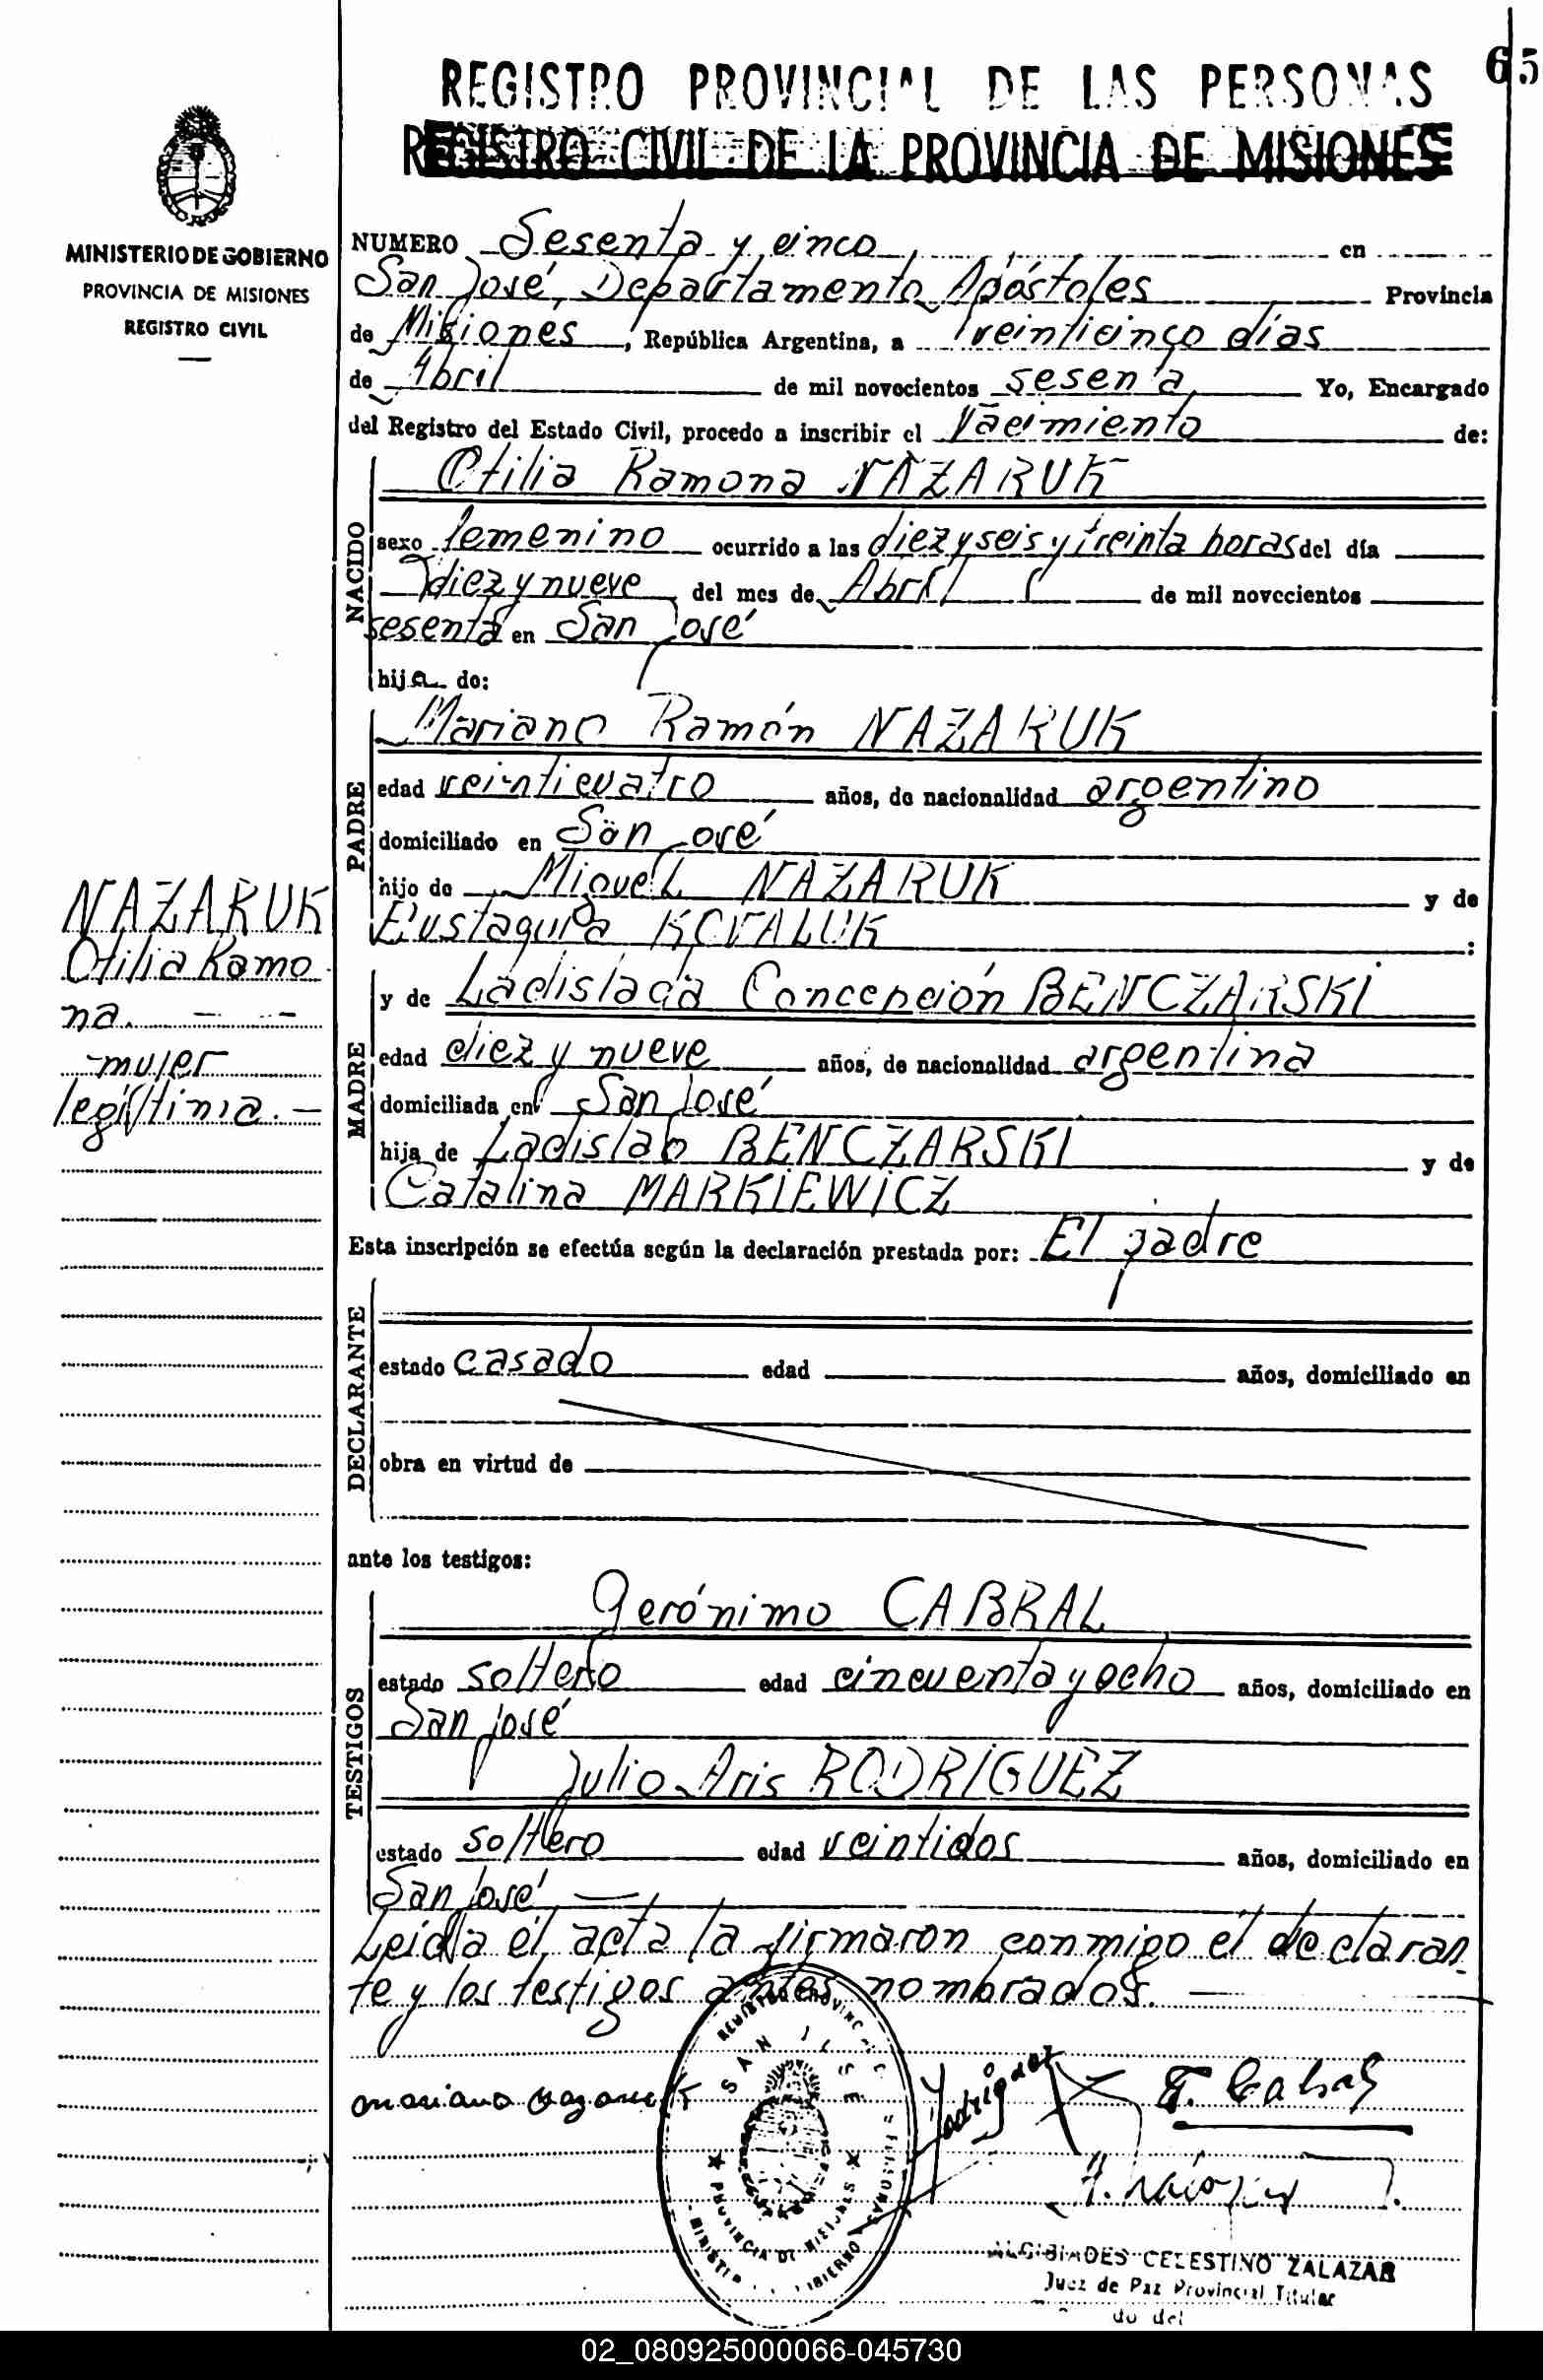 65
REGISTRO PROVINCIAL DE LAS PERSONAS
REGISTRO CIVIL DE LA PROVINCIA DE MISIONES
MINISTERIO DE GOBIERNO
PROVINCIA DE MISIONES
REGISTRO CIVIL
NUMERO Sesenta y cinco, en
San José, Departamento Apóstoles Provincia
de Misiones, República Argentina, a veinticinco días
de Abril de mil novecientos sesenta Yo, Encargado
del Registro del Estado Civil, procedo a inscribir el Nacimiento de:
NACIDO
Otilia Ramona NAZARUK
sexo femenino ocurrido a las diez y seis y treinta horas del día
diez y nueve del mes de Abril de mil novecientos
sesenta en San José
hija de:
PADRE
Mariano Ramón NAZARUK
edad veinticuatro años, de nacionalidad argentino
domiciliado en San José
hijo de Miguel NAZARUK y de
Eustaquia KOVALUK :
MADRE
y de Ladislada Concepción BENCZARSKI
edad diez y nueve años, de nacionalidad argentina
domiciliada en San José
hija de Ladislao BENCZARSKI y de
Catalina MARKIEWICZ
NAZARUK
Otilia Ramo
na. - -
-mujer
legítima.-
Esta inscripción se efectúa según la declaración prestada por: El padre
DECLARANTE
estado casado edad años, domiciliado en
obra en virtud de
ante los testigos:
TESTIGOS
Gerónimo CABRAL
estado soltero edad cincuenta y ocho años, domiciliado en
San José
Julio Aris RODRÍGUEZ
estado soltero edad veintidos años, domiciliado en
San José -
Leída el acta la firmaron conmigo el declaran-
te y los testigos antes nombrados. -
REGISTRO PROVINC
SAN JOSE
PROVINCIA DE MISIONES
mariano Nazaruk
Rodriguez
G. Cabral
ALCIBIADES CELESTINO ZALAZAR
Juez de Paz Provincial Titular
02_080925000066-045730